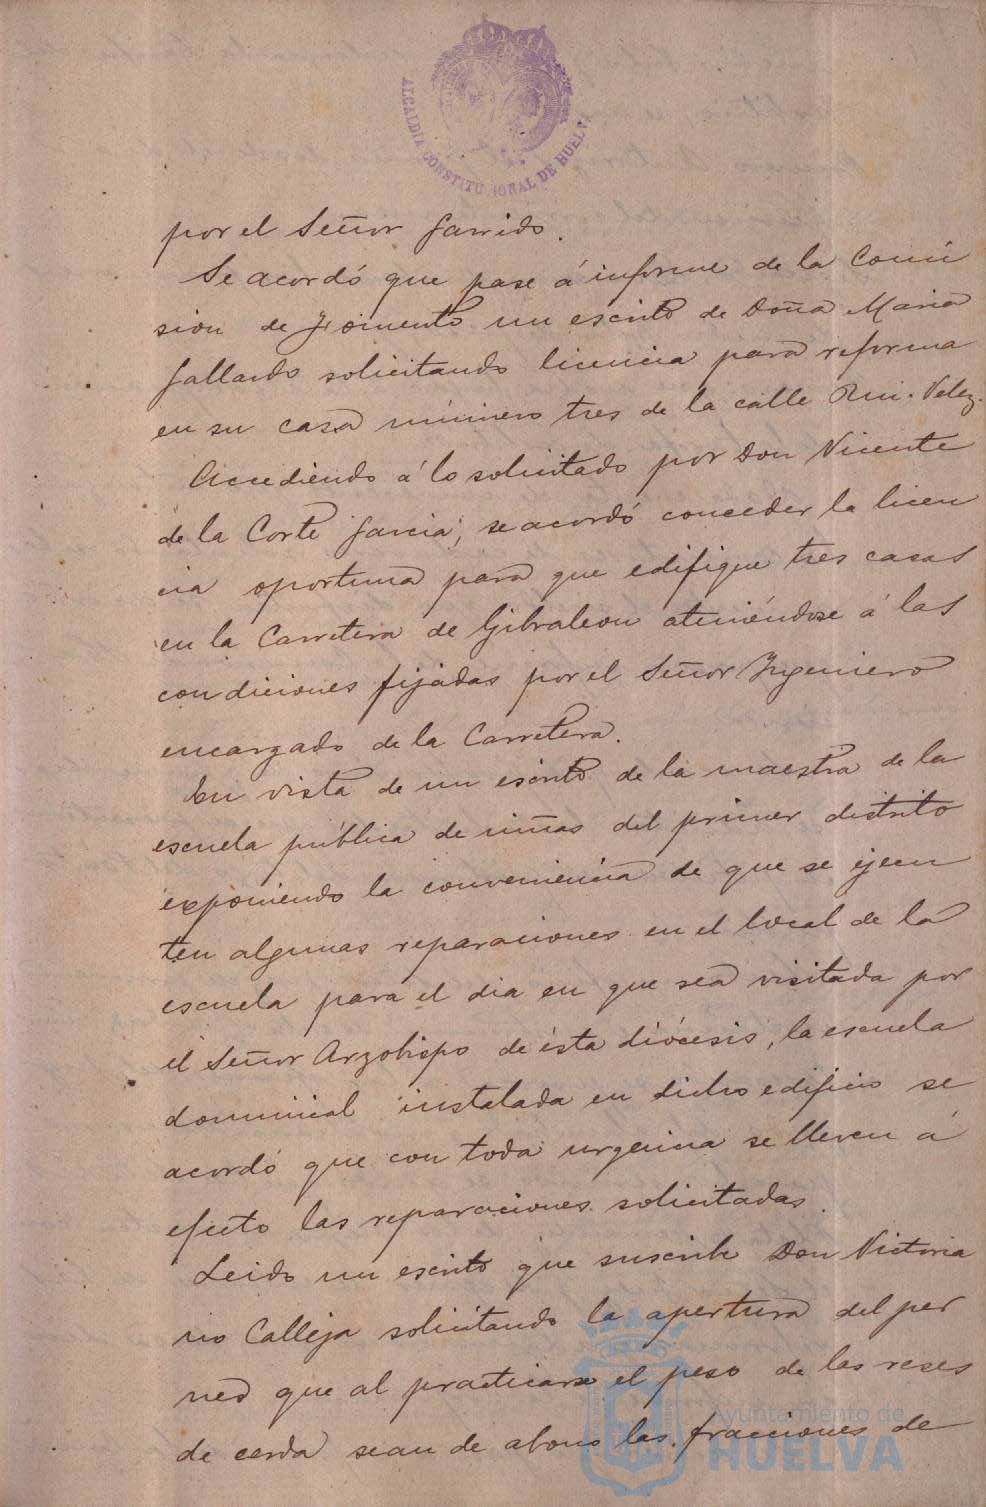 ALCALDIA CONSTITUCIONAL DE HUELVA
por el Señor Garrido.
Se acordó que pase á informe de la Comi
sion de Fomento un escrito de Doña Maria
Gallardo solicitando licencia para reforma
en su casa número tres de la calle Rui-Velez.
Accediendo á lo solicitado por Don Vicente
de la Corte Garcia, se acordó conceder la licen
cia oportuna para que edifique tres casas
en la Carretera de Gibraleon ateniéndose á las
condiciones fijadas por el Señor Yngeniero
encargado de la Carretera.
En vista de un escrito de la maestra de la
escuela pública de niñas del primer distrito
exponiendo la conveniencia de que se ejecu
ten algunas reparaciones en el local de la
escuela para el dia en que sea visitada por
el Señor Arzobispo de ésta diócesis, la escuela
dominical instalada en dicho edificio se
acordó que con toda urgencia se lleven á
efecto las reparaciones solicitadas.
Leido un escrito que suscribe Don Victoria
no Calleja solicitando la apertura del per
neo que al practicarse el peso de las reses
de cerda sean de abono las fracciones de
Ayuntamiento de
HUELVA